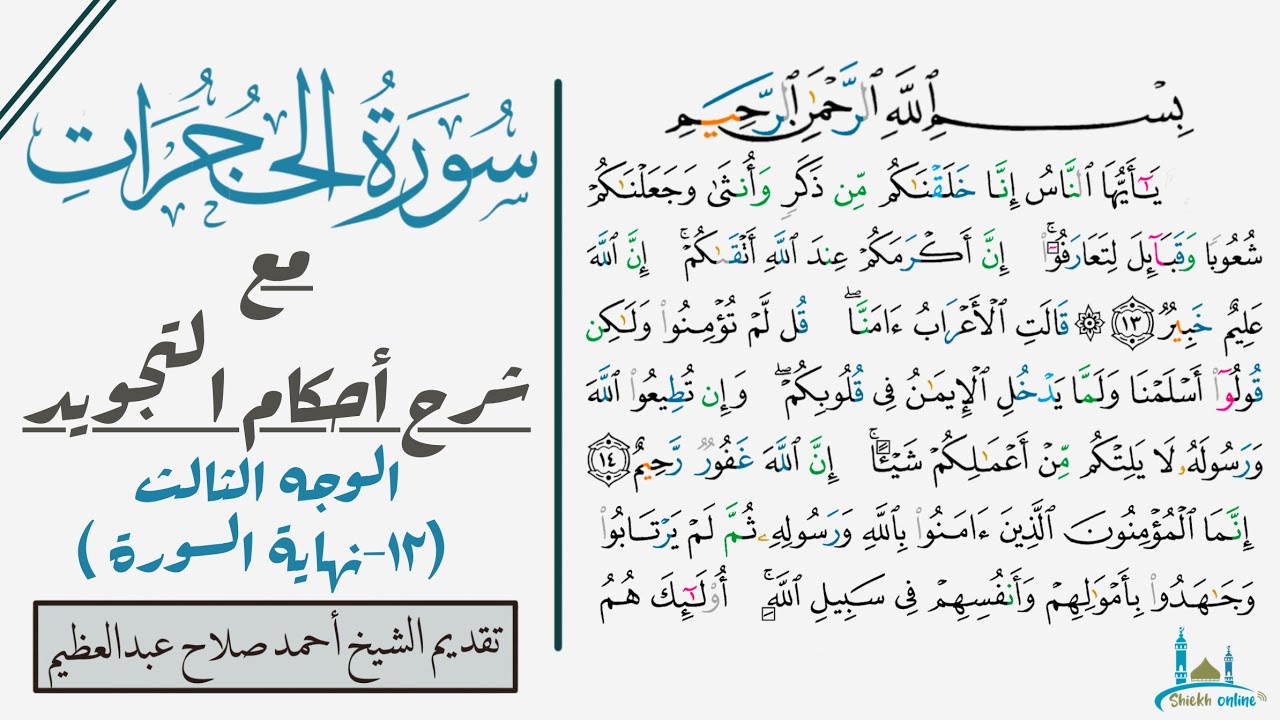 سُورَةُ الحُجُرَاتِ
مع
شرح أحكام التجويد
الوجه الثالث
(١٢-نهاية السورة)
تقديم الشيخ أحمد صلاح عبدالعظيم
بِسْمِ ٱللَّهِ ٱلرَّحْمَٰنِ ٱلرَّحِيمِ
يَـٰٓأَيُّهَا ٱلنَّاسُ إِنَّا خَلَقْنَـٰكُم مِّن ذَكَرٍ وَأُنثَىٰ وَجَعَلْنَـٰكُمْ
شُعُوبًا وَقَبَآئِلَ لِتَعَارَفُوٓا۟ ۚ إِنَّ أَكْرَمَكُمْ عِندَ ٱللَّهِ أَتْقَىٰكُمْ ۚ إِنَّ ٱللَّهَ
عَلِيمٌ خَبِيرٌ ١٣ ۞ قَالَتِ ٱلْأَعْرَابُ ءَامَنَّا ۖ قُل لَّمْ تُؤْمِنُوا۟ وَلَـٰكِن
قُولُوٓا۟ أَسْلَمْنَا وَلَمَّا يَدْخُلِ ٱلْإِيمَـٰنُ فِى قُلُوبِكُمْ ۖ وَإِن تُطِيعُوا۟ ٱللَّهَ
وَرَسُولَهُۥ لَا يَلِتْكُم مِّنْ أَعْمَـٰلِكُمْ شَيْـًٔا ۚ إِنَّ ٱللَّهَ غَفُورٌ رَّحِيمٌ ١٤
إِنَّمَا ٱلْمُؤْمِنُونَ ٱلَّذِينَ ءَامَنُوا۟ بِٱللَّهِ وَرَسُولِهِۦ ثُمَّ لَمْ يَرْتَابُوا۟
وَجَـٰهَدُوا۟ بِأَمْوَٰلِهِمْ وَأَنفُسِهِمْ فِى سَبِيلِ ٱللَّهِ ۚ أُو۟لَـٰٓئِكَ هُمُ
Shiekh online